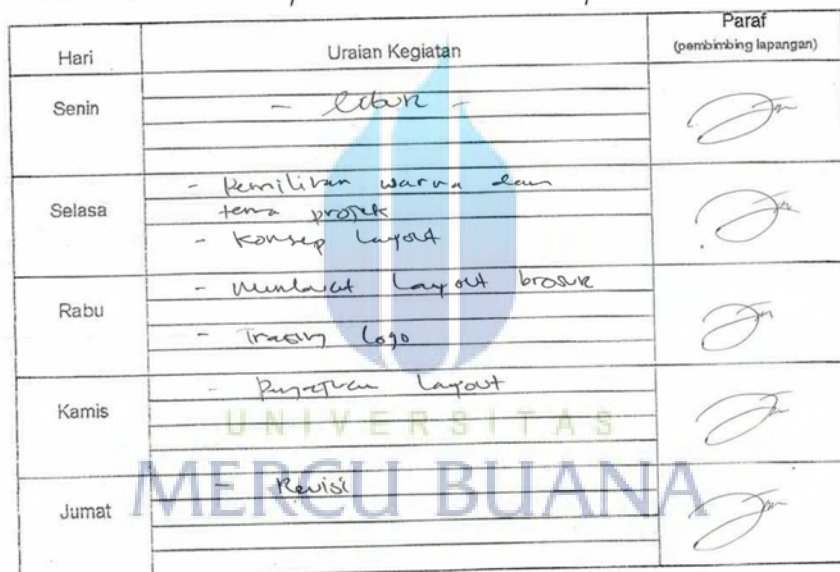 Hari Uraian Kegiatan Paraf
(pembimbing lapangan)
Senin - Libur -
Selasa - Pemilihan warna dan
tema projek
- Konsep Layout
Rabu - Membuat Layout brosur
- Tracing Logo
Kamis - Layout
Jumat - Revisi
UNIVERSITAS
MERCU BUANA